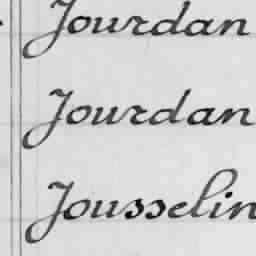 Jourdan
Jourdan
Jousselin